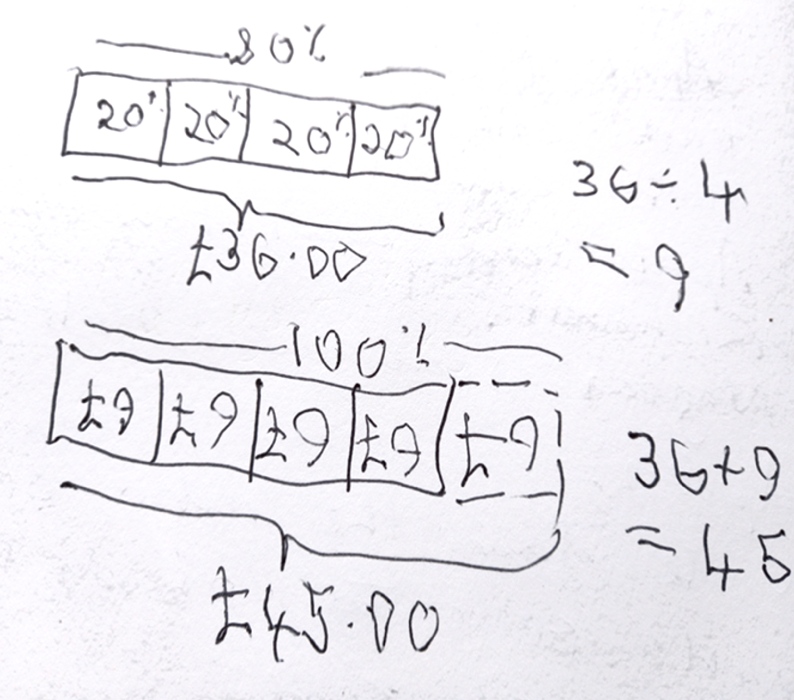 80%
20% 20% 20% 20%
£36.00
36÷4
= 9
100%
£9 £9 £9 £9 £9
£45.00
36+9
= 45